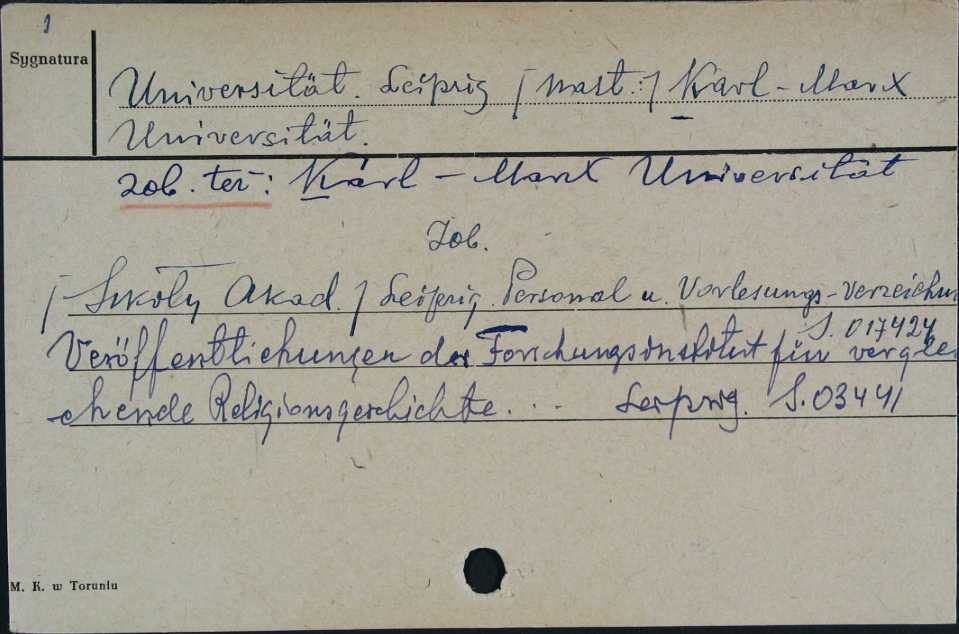 1
Sygnatura
Universität. Leipzig [nast.:] Karl-Marx
Universität.
zob. też: Karl-Marx Universität
Zob.
[Szkoły Akad.] Leipzig. Personal u. Vorlesungs-Verzeichn
S. 017424
Veröffentlichungen des Forschungsinstitut für verglei
chende Religionsgeschichte... Leipzig. S. 03441
M. K. w Toruniu